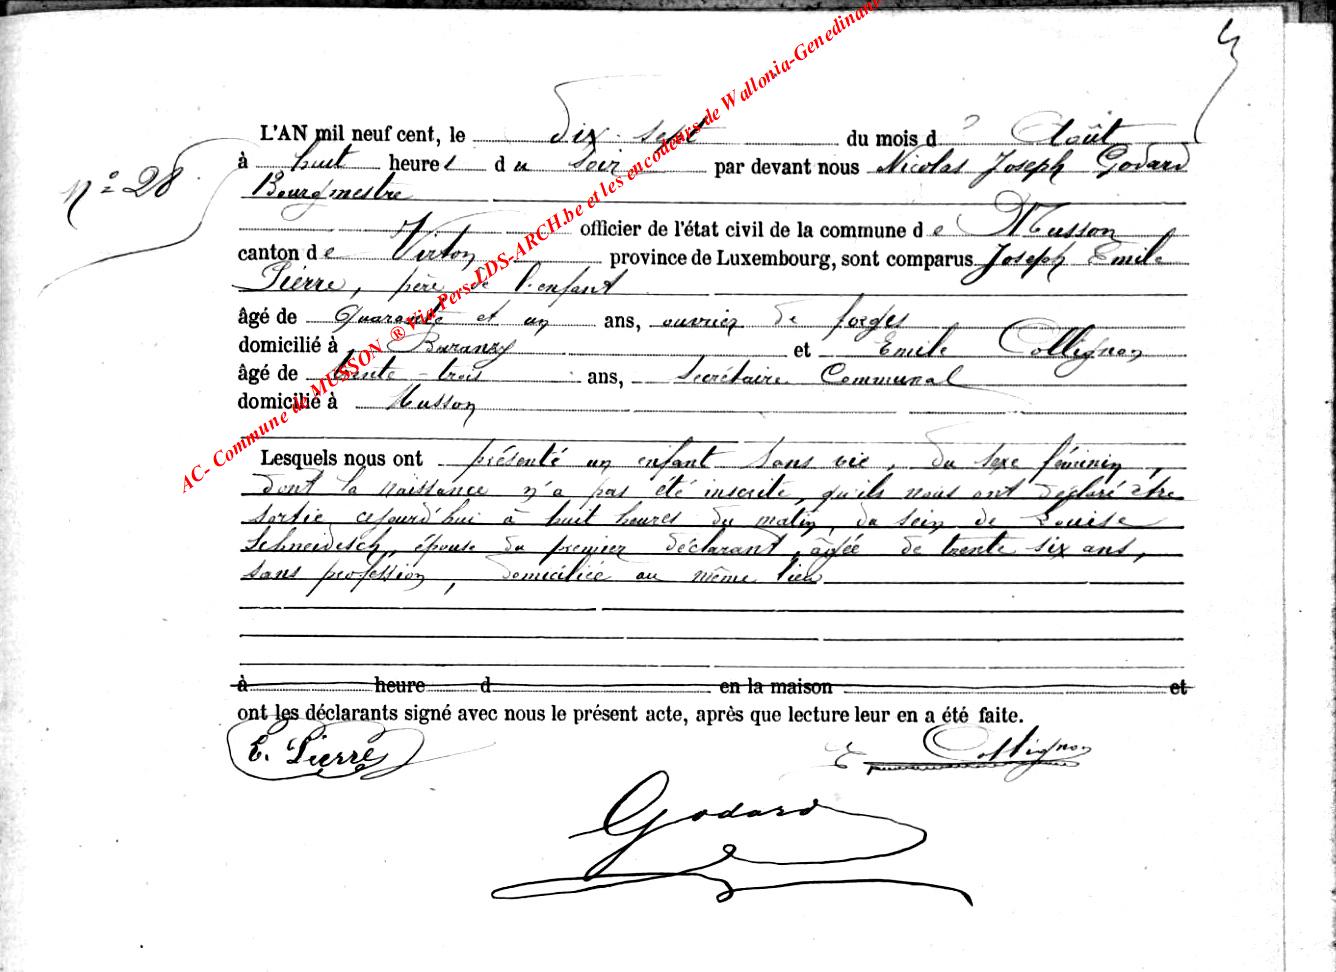 L'AN mil neuf cent, le dix-sept du mois d'Août
n° 28
à huit heures du soir par devant nous Nicolas Joseph Godard
Bourgmestre
officier de l'état civil de la commune de Musson
canton de Virton province de Luxembourg, sont comparus Joseph Emile
Pierre, père de l'enfant
âgé de Quarante et un ans, ouvrier de forges
domicilié à Baranzy et Emile Collignon
âgé de trente-trois ans, Secrétaire Communal
domicilié à Musson
Lesquels nous ont présenté un enfant sans vie, du sexe féminin,
dont la naissance n'a pas été inscrite, qu'ils nous ont déclaré être
sortie aujourd'hui à huit heures du matin, du sein de Louise
Schneidesch, épouse du premier déclarant, âgée de trente six ans,
sans profession, domiciliée au même lieu
à heure d en la maison et
ont les déclarants signé avec nous le présent acte, après que lecture leur en a été faite.
E. Pierre E Collignon
Godard
AC- Commune de MUSSON ® via Pers-EDS-ARCH.be et les encodeurs de Wallonia-Genedinant